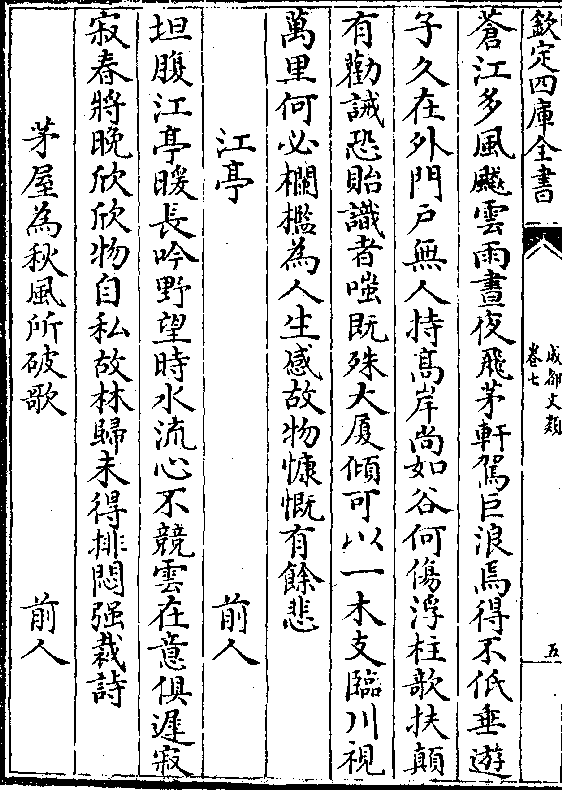 欽定四庫全書
成都文類
卷七
五
蒼江多風飈雲雨晝夜飛茅軒駕巨浪焉得不低垂遊
子久在外門戸無人持髙岸尚如谷何傷浮柱欹扶顛
有勸誡恐貽識者嗤既殊大厦傾可以一木支臨川視
萬里何必欄檻為人生感故物慷慨有餘悲
江亭 前人
坦腹江亭暖長吟野望時水流心不競雲在意俱遲寂
寂春將晚欣欣物自私故林歸未得排悶强裁詩
茅屋為秋風所破歌 前人